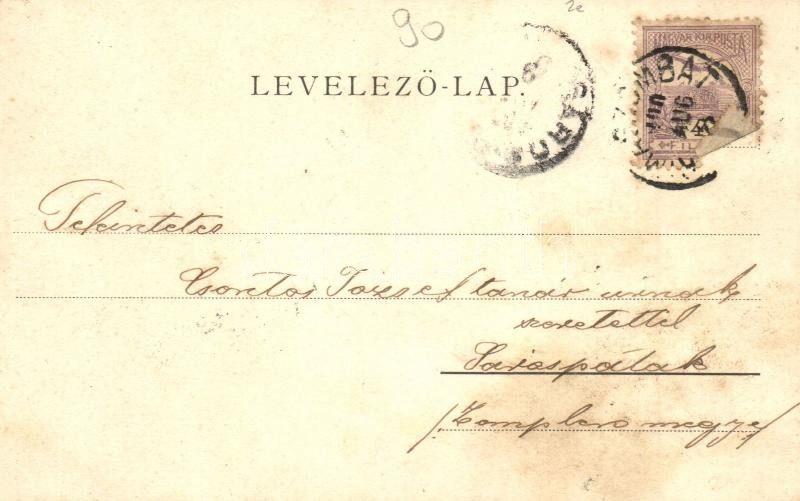 90
LEVELEZÖ-LAP.
MAGYAR KIR. POSTA
SZOMBAT
AUG
FIL
Tekintetes
Csontos József tanár úrnak
szeretettel
Sárospatak
/Zemplén megye/